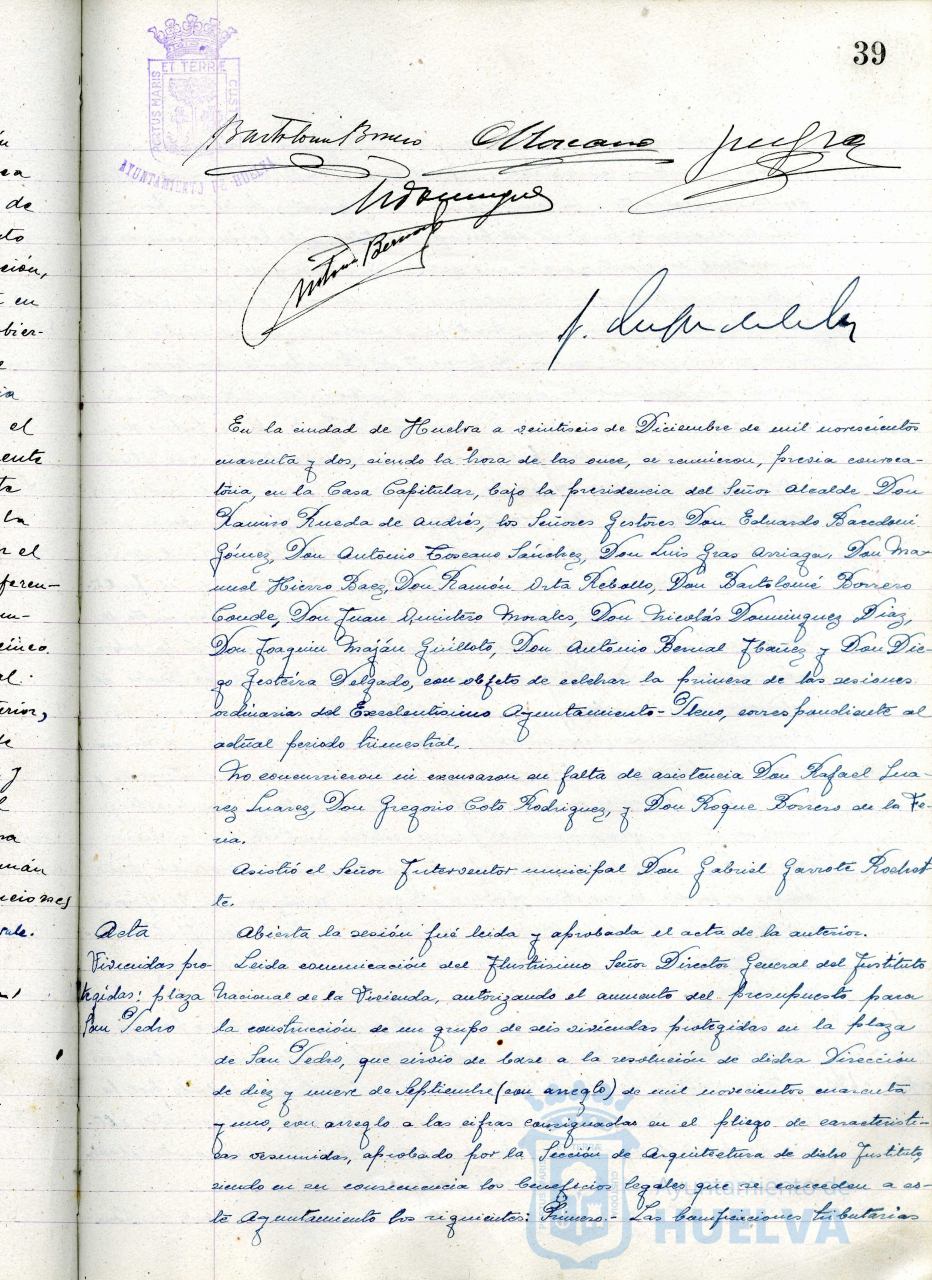 39
PORTUS MARIS ET TERRE CUSTODIA
AYUNTAMIENTO DE HUELVA
Bartolomé Borrero
Toscano
Antonio Bernal
En la ciudad de Huelva a veintiseis de Diciembre de mil novecientos
cuarenta y dos, siendo la hora de las once, se reunieron, previa convoca-
toria, en la Casa Capitular, bajo la presidencia del Señor Alcalde Don
Ramiro Rueda de Andrés, los Señores Gestores Don Eduardo Bacedoni
Gómez, Don Antonio Toscano Sánchez, Don Luis Gras Arriaga, Don Ma-
nuel Hierro Baez, Don Ramón Orta Rebollo, Don Bartolomé Borrero
Conde, Don Juan Quintero Morales, Don Nicolás Dominguez Diaz,
Don Joaquin Maján Guilloto, Don Antonio Bernal Ibañez y Don Die-
go Gesteira Delgado, con objeto de celebrar la primera de las sesiones
ordinarias del Excelentisimo Ayuntamiento-Pleno, correspondiente al
actual periodo trimestral.
No concurrieron ni excusaron su falta de asistencia Don Rafael Sua-
rez Suarez, Don Gregorio Coto Rodriguez, y Don Roque Borrero de la Fe-
ria.
Asistió el Señor Interventor municipal Don Gabriel Garrote
te.
Acta
Abierta la sesión fué leida y aprobada el acta de la anterior.
Viviendas pro-
tegidas: plaza
San Pedro
Leida comunicación del Ilustrisimo Señor Director General del Instituto
Nacional de la Vivienda, autorizando el aumento del presupuesto para
la construcción de un grupo de seis viviendas protegidas en la plaza
de San Pedro, que sirvio de base a la resolución de dicha Dirección
de diez y nueve de Septiembre (con arreglo) de mil novecientos cuarenta
y uno, con arreglo a las cifras consignadas en el pliego de caracteristi-
cas resumidas, aprobado por la Sección de Arquitectura de dicho Instituto,
siendo en su consecuencia los beneficios legales que se conceden a es-
te Ayuntamiento los siguientes: Primero.- Las bonificaciones tributarias
Ayuntamiento de
HUELVA